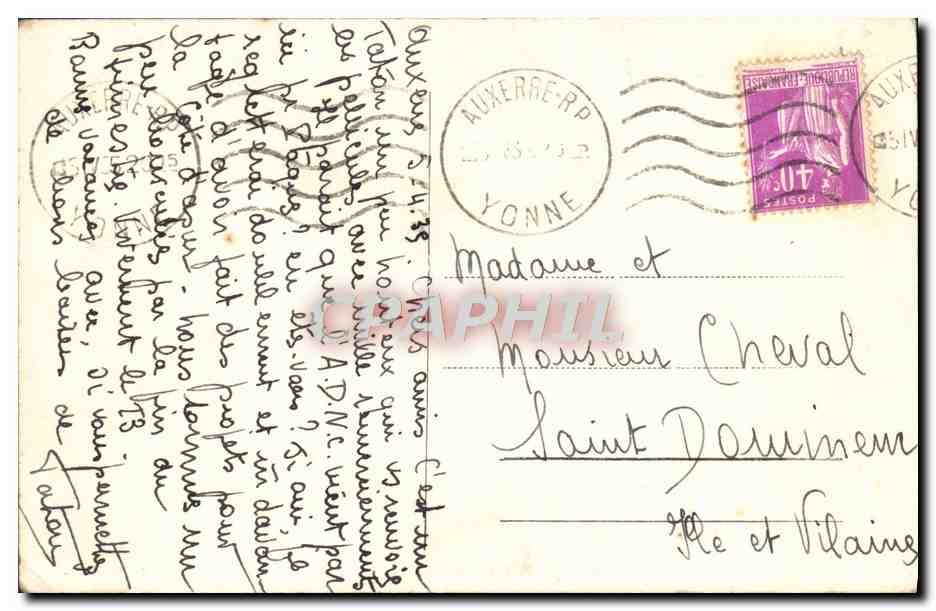 Auxerre 5-4-35. Chers amis C'est un
Tatou un peu honteux qui vs renvoie
les pellicules avec mille remerciements
Il parait que l'A.D.N.C. vient par
ici pr Pâques, en êtes-vous? Si oui, je
regretterai doublement et un davan-
tage d'avoir fait des projets pour
la Côte d'azur - nous sommes un
peu bousculés par la fin du
trimestre. Internent le 13
Bonnes vacances avec, si vous permettez
de bons baisers de
Tatou
AUXERRE-R.P.
YONNE
AUXERRE-R.P.
YONNE
AUXERRE
YONNE
REPUBLIQUE FRANÇAISE
40c
POSTES
Madame et
Monsieur Cheval
Saint Domineuc
Ile et Vilaine
CPAPHIL